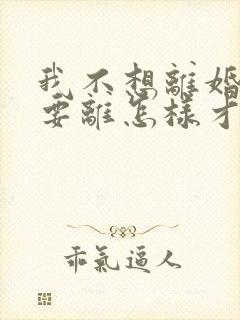 我不想離婚
要離怎樣才
乖氣逼人